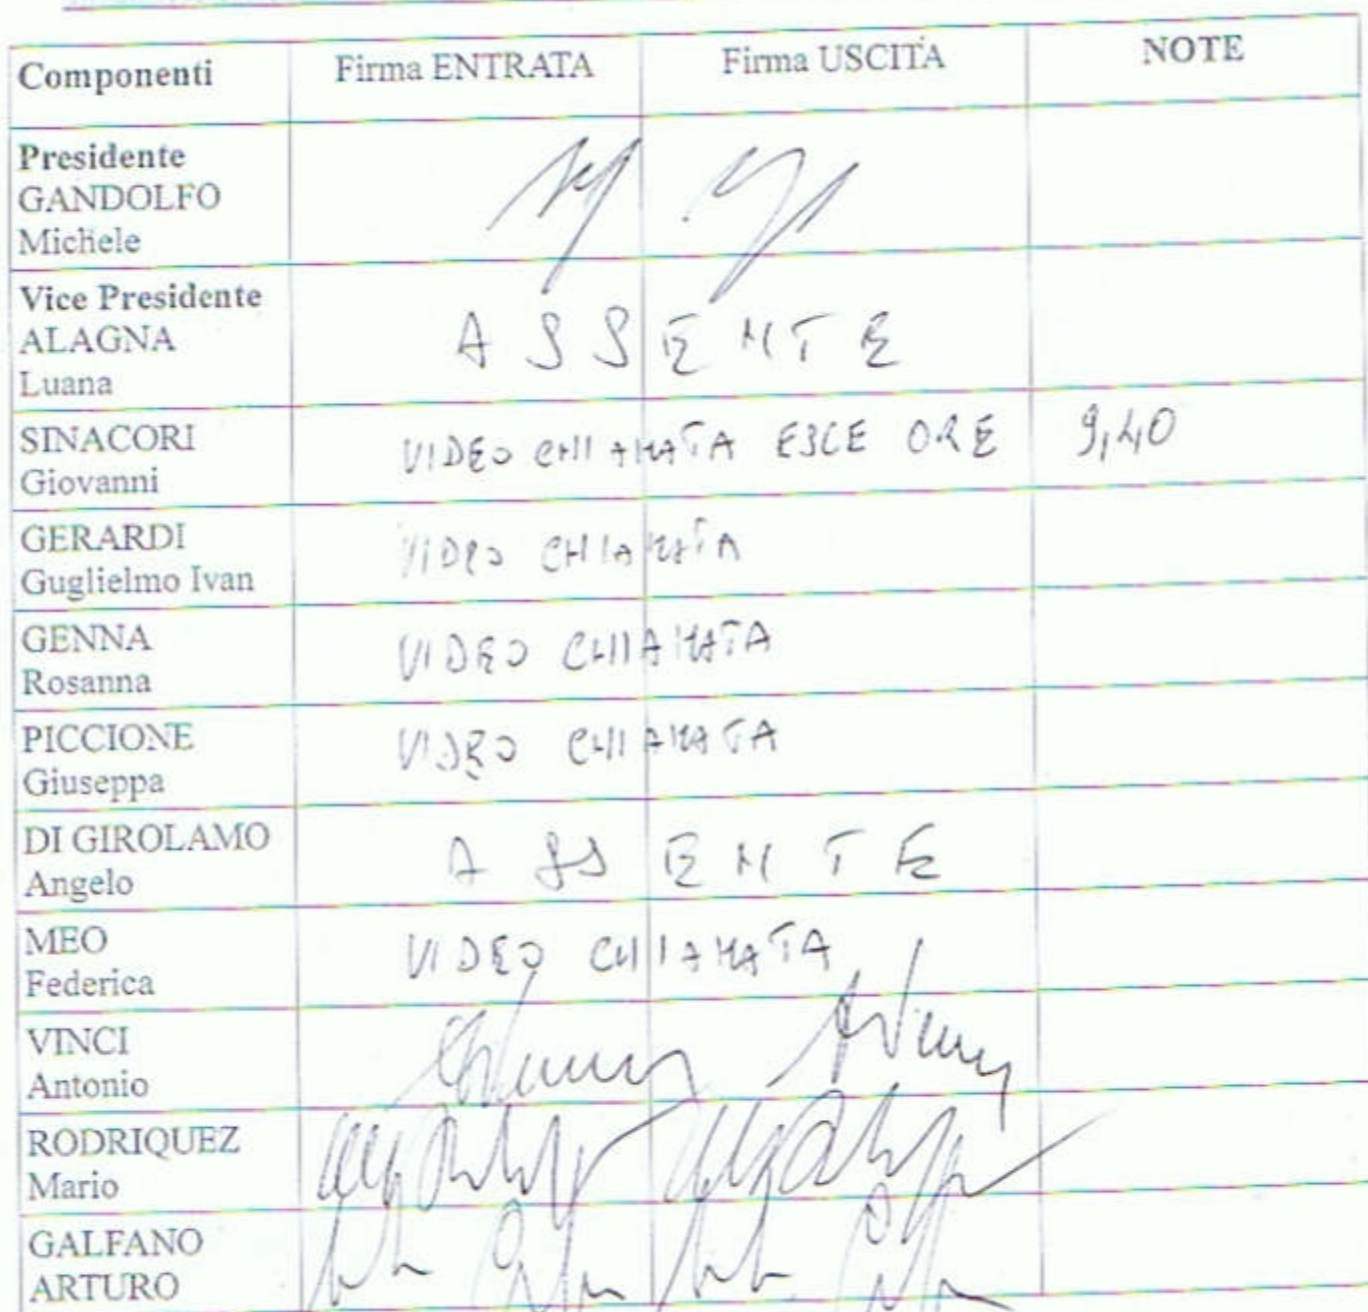 Componenti Firma ENTRATA Firma USCITA NOTE
Presidente
GANDOLFO
Michele
Vice Presidente
ALAGNA
Luana
ASSENTE
SINACORI
Giovanni
VIDEO CHIAMATA ESCE ORE 9,40
GERARDI
Guglielmo Ivan
VIDEO CHIAMATA
GENNA
Rosanna
VIDEO CHIAMATA
PICCIONE
Giuseppa
VIDEO CHIAMATA
DI GIROLAMO
Angelo
ASSENTE
MEO
Federica
VIDEO CHIAMATA
VINCI
Antonio
RODRIQUEZ
Mario
GALFANO
ARTURO